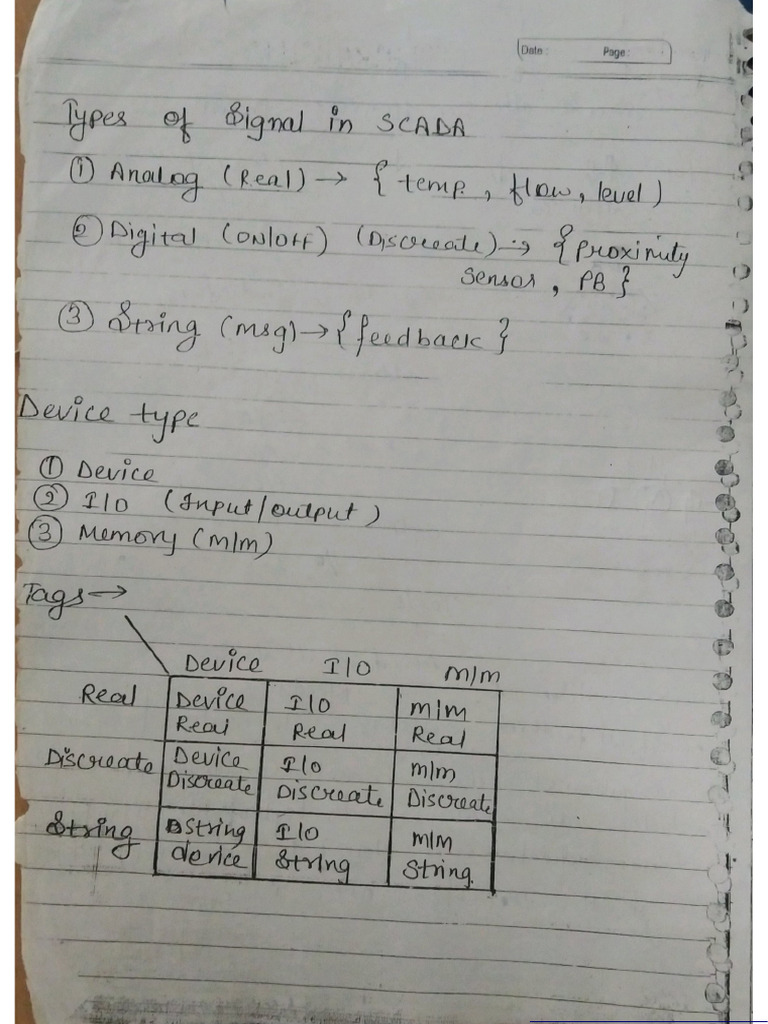 Date : Page :
Types of Signal in SCADA
① Analog (Real) → { temp, flow, level )
② Digital (ON/OFF) (Discreate) → { proximity
sensor, PB }
③ String (msg) → { feedback }
Device type
① Device
② I/O (Input/output)
③ Memory (m/m)
Tags →
Device I/O m/m
Real Device I/O m/m
Real Real Real
Discreate Device I/O m/m
Discreate Discreate Discreate
String String I/O m/m
device String String